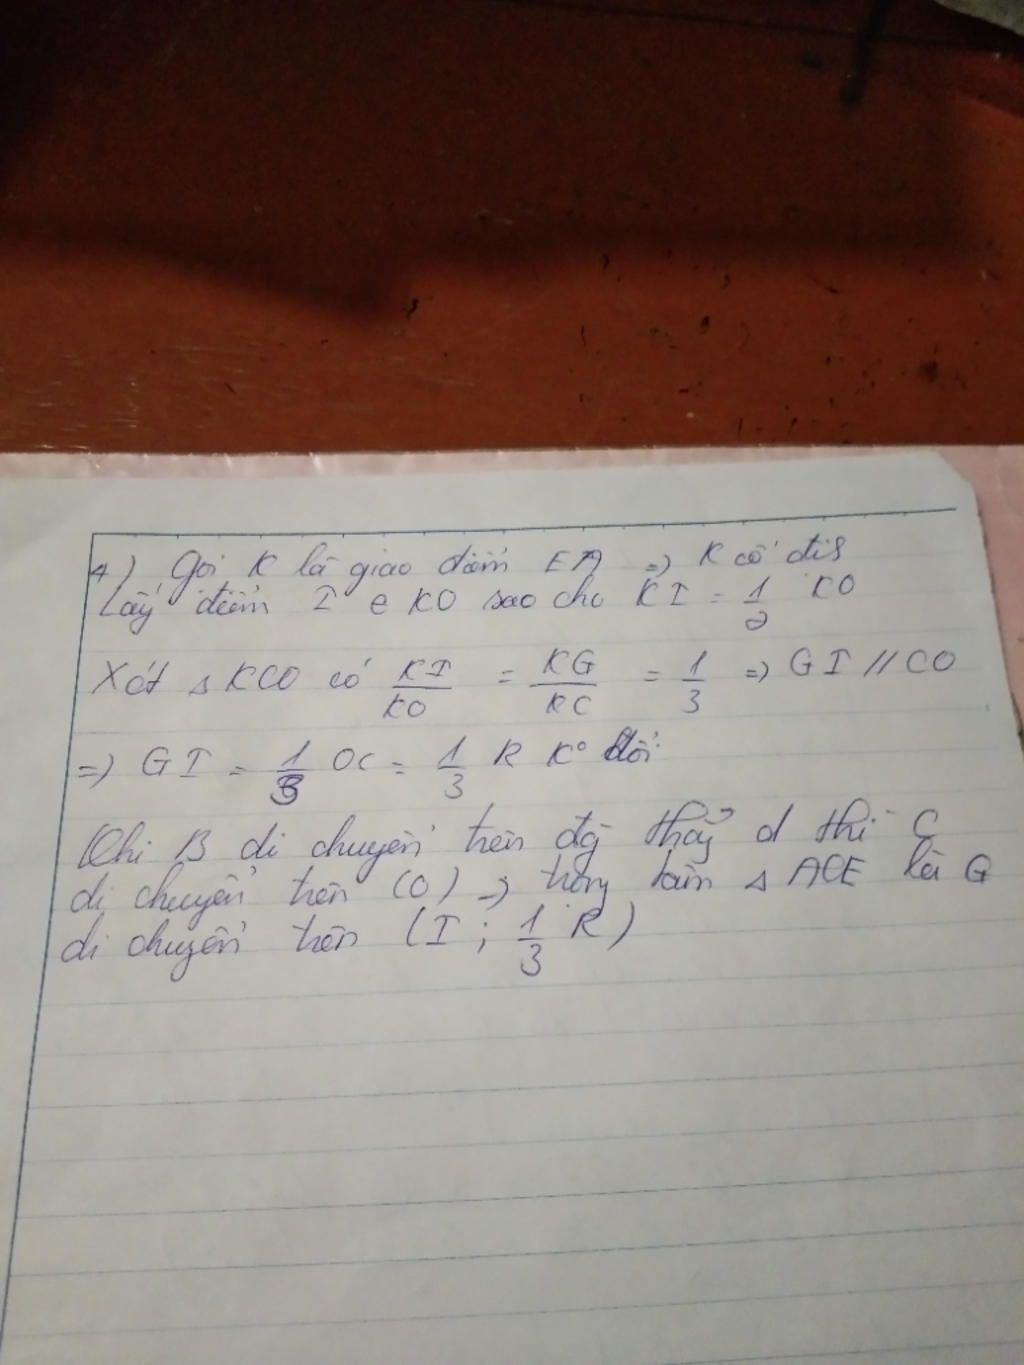 4) Gọi K là giao điểm EA => K cố đis
Lấy điểm I e KO sao cho KI = 1/2 KO
Xét Δ KCO có KI/KO = KG/KC = 1/3 => GI // CO
=> GI = 1/3 OC = 1/3 R K° đổi
Khi B di chuyển trên đg thẳg d thì C
di chuyển trên (O) -> trọng tâm Δ ACE là G
di chuyển trên (I ; 1/3 R)